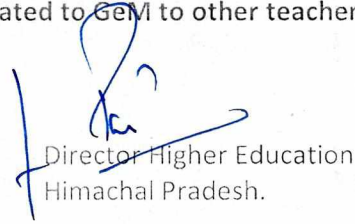 ated to GeM to other teacher
Director Higher Education
Himachal Pradesh.